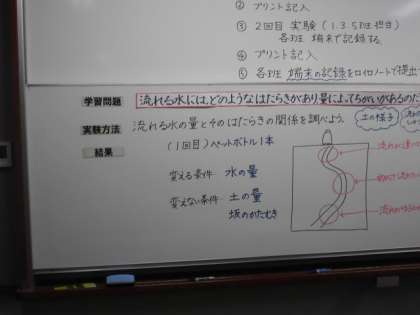 ② プリント記入
③ 2回目 実験 (1.3.5班担当)
各班 端末で記録する。
④ プリント記入
⑤ 各班 端末の記録をロイロノートで提出
学習問題 流れる水には、どのようなはたらきがあり量によってちがいがあるのだ
実験方法 流れる水の量とそのはたらきの関係を調べよう。
土の様子
結果 (1回目) ペットボトル1本
変える条件 水の量
変えない条件 土の量
坂のかたむき